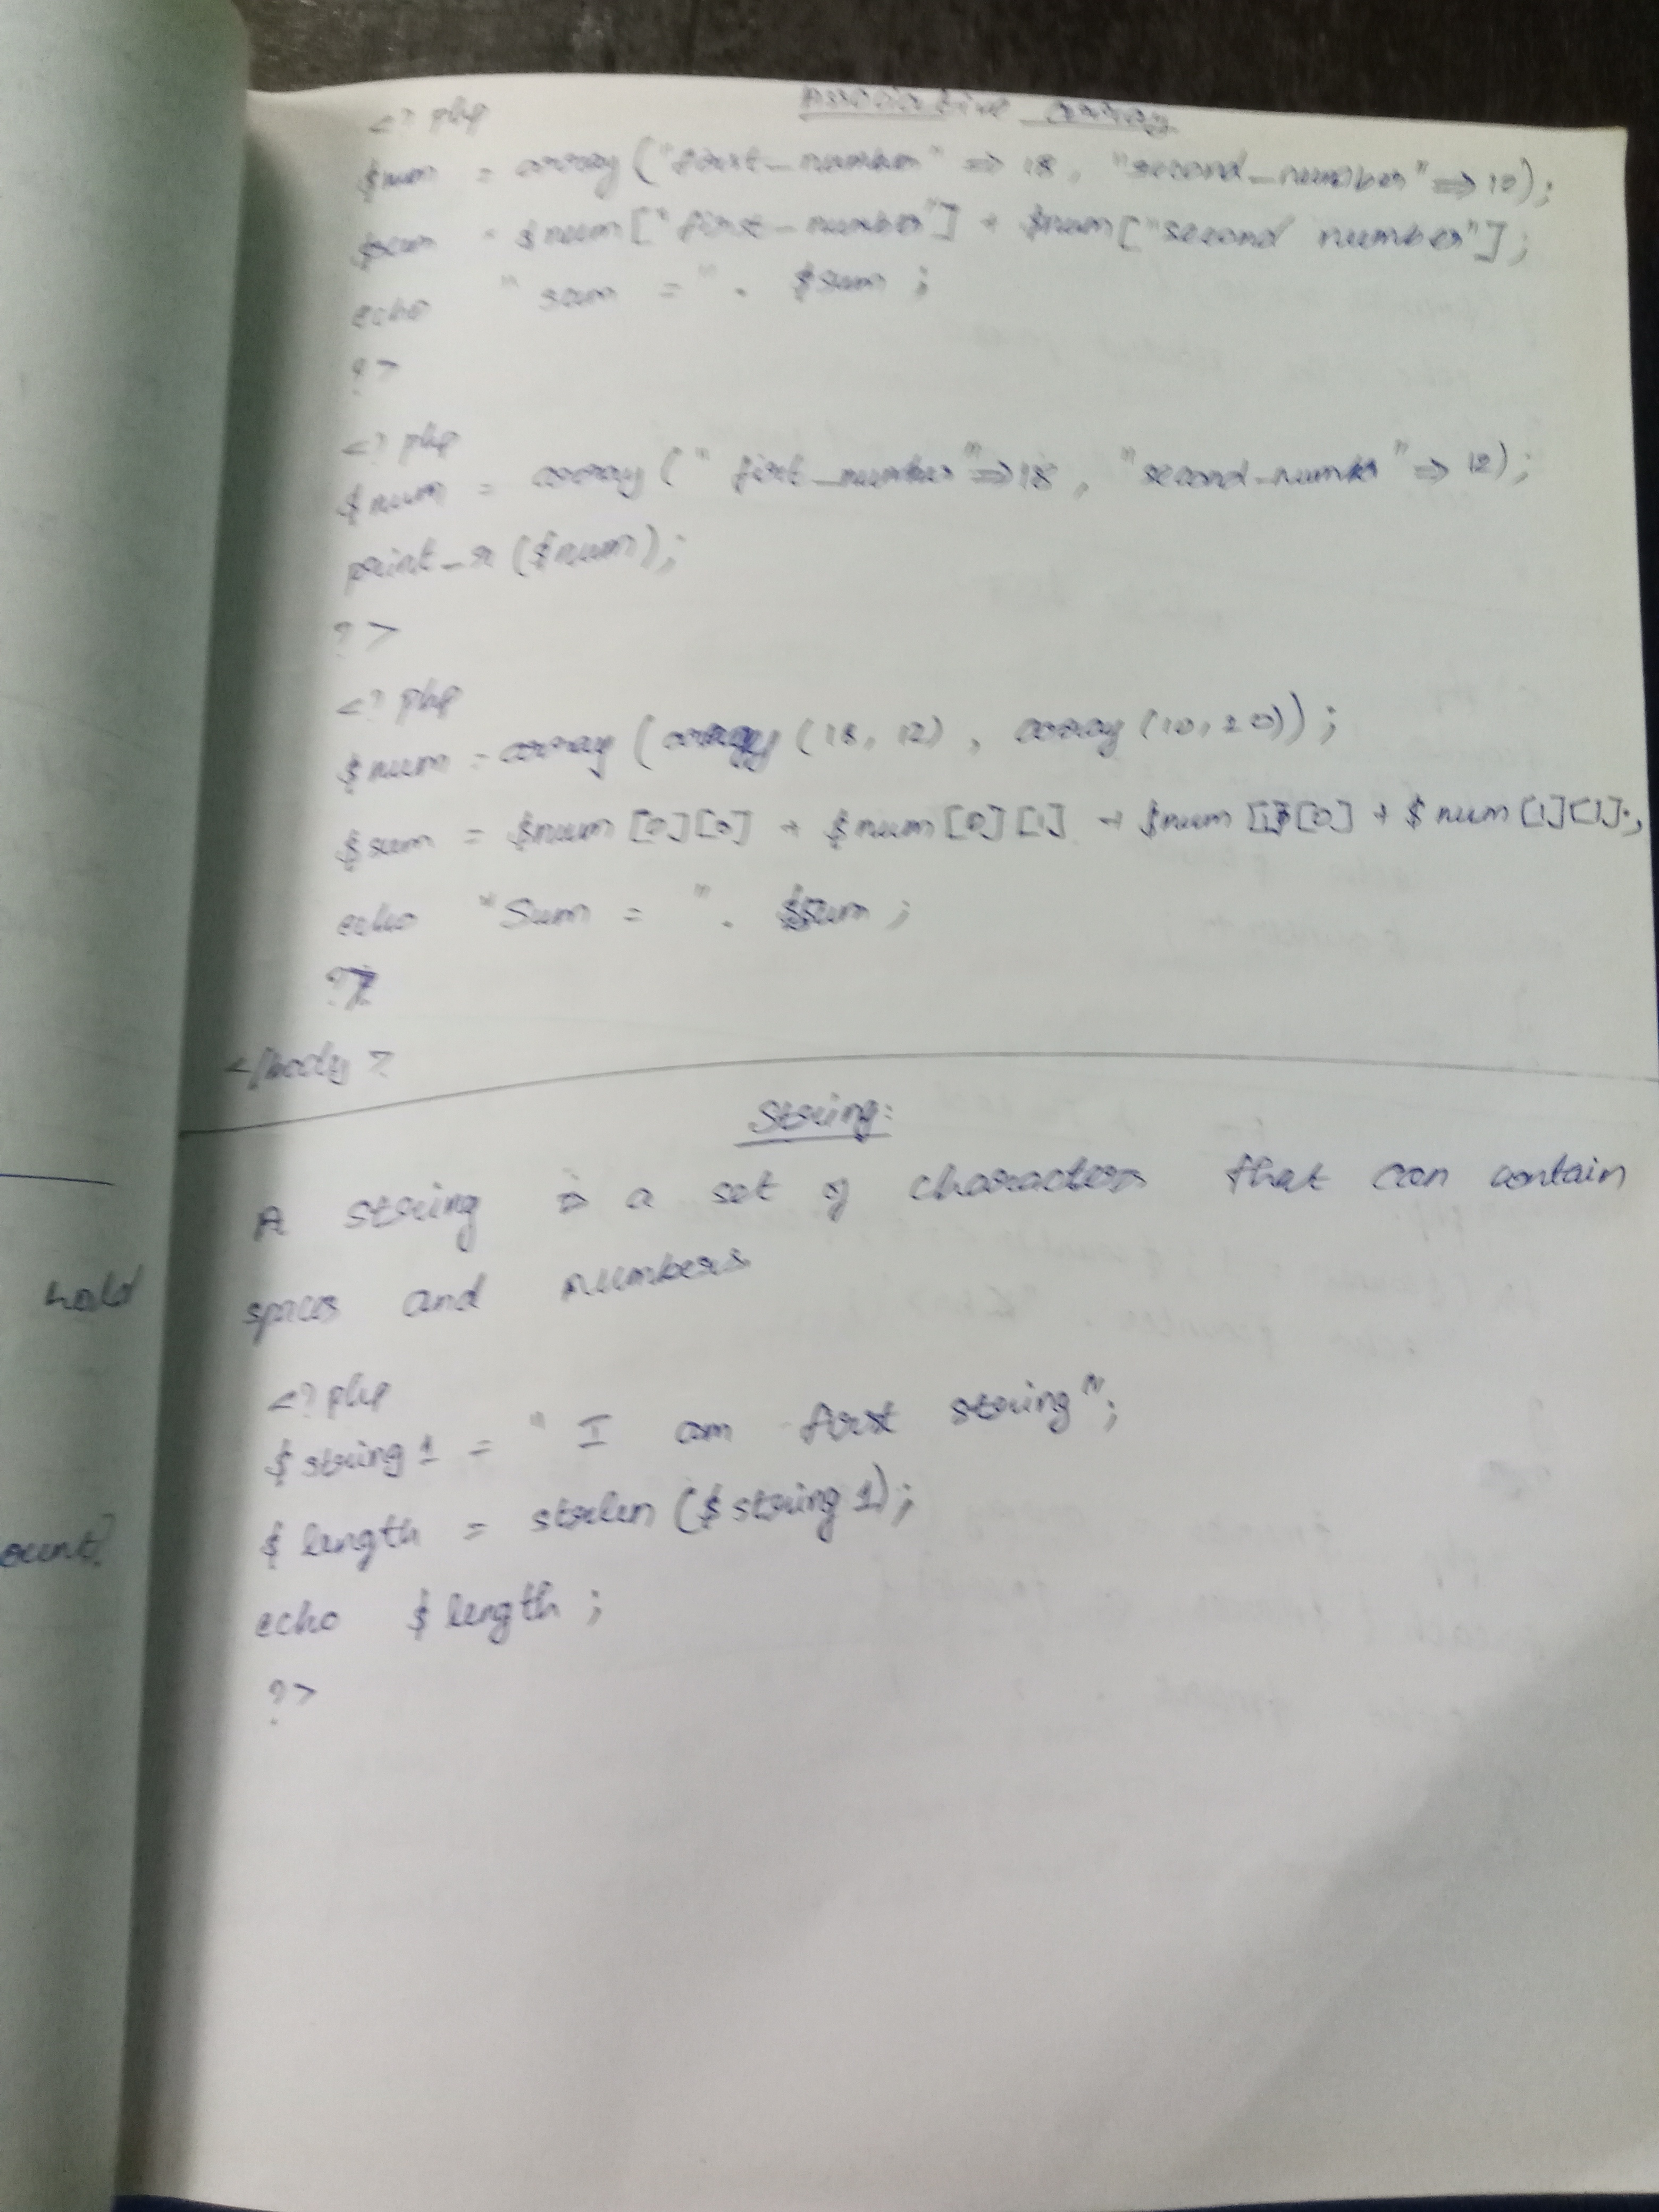 Associative array
<? php
$num = array ("first_number" => 18, "second_number" => 12);
$sum = $num ["first_number"] + $num ["second number"];
echo "sum = " . $sum ;
? >
<? php
$num = array (" first_number" => 18, "second_number" => 12);
print_r ($num);
? >
<? php
$num = array (array (18, 12), array (10, 20));
$sum = $num [0][0] + $num [0][1] + $num [1][0] + $ num [1][1];
echo "Sum = ". $sum ;
?>
</body >
String:
A string is a set of characters that can contain
spaces and numbers
<? php
$ string 1 = " I am first string";
$ length = strlen ($ string 1);
echo $ length ;
? >
hold
ount?